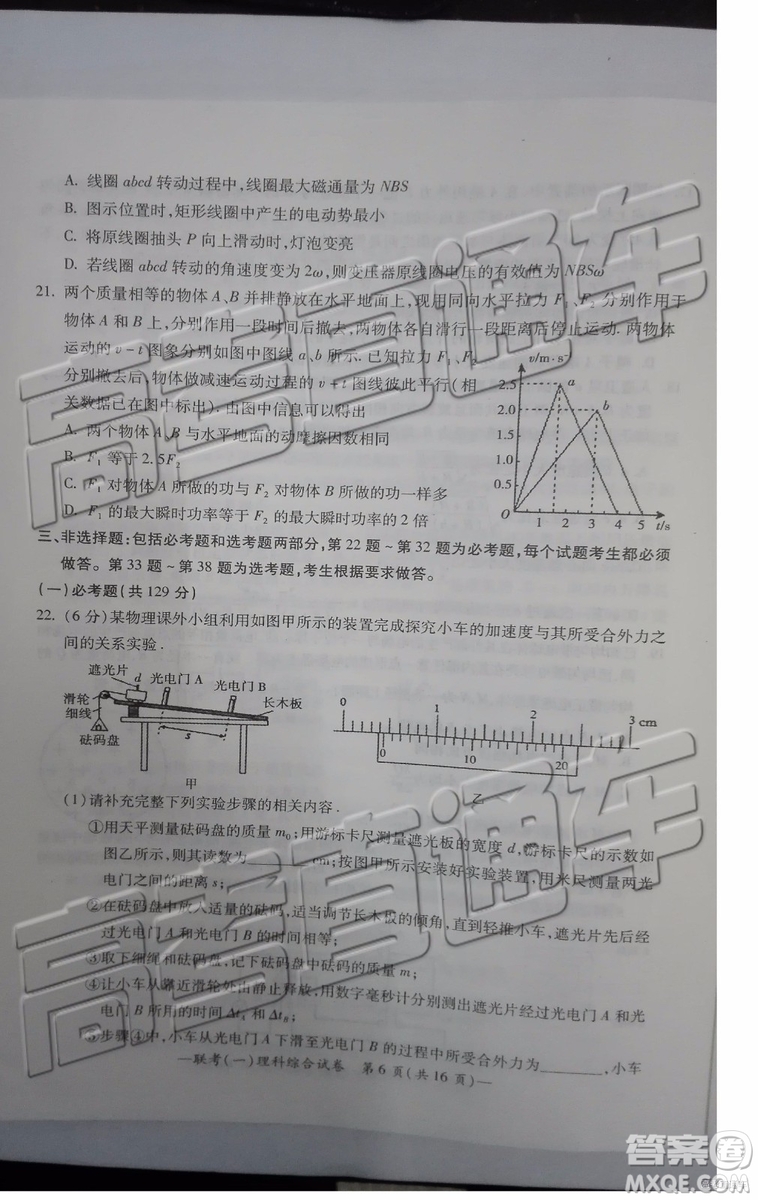 A. 线圈 abcd 转动过程中,线圈最大磁通量为 NBS
B. 图示位置时,矩形线圈中产生的电动势最小
C. 将原线圈抽头 P 向上滑动时,灯泡变亮
D. 若线圈 abcd 转动的角速度变为 2ω,则变压器原线圈电压的有效值为 NBSω
21. 两个质量相等的物体 A、B 并排静放在水平地面上,现用同向水平拉力 F₁、F₂ 分别作用于
物体 A 和 B 上,分别作用一段时间后撤去,两物体各自滑行一段距离后停止运动. 两物体
运动的 v-t 图象分别如图中图线 a、b 所示. 已知拉力 F₁、F₂
分别撤去后,物体做减速运动过程的 v-t 图线彼此平行(相
关数据已在图中标出). 由图中信息可以得出
A. 两个物体 A、B 与水平地面的动摩擦因数相同
B. F₁ 等于 2.5F₂
C. F₁ 对物体 A 所做的功与 F₂ 对物体 B 所做的功一样多
D. F₁ 的最大瞬时功率等于 F₂ 的最大瞬时功率的 2 倍
v/m·s⁻
2.5
2.0
1.5
1.0
0.5
0
1 2 3 4 5 t/s
a
b
三、非选择题:包括必考题和选考题两部分,第 22 题~第 32 题为必考题,每个试题考生都必须
做答。第 33 题~第 38 题为选考题,考生根据要求做答。
(一)必考题(共 129 分)
22. (6 分)某物理课外小组利用如图甲所示的装置完成探究小车的加速度与其所受合外力之
间的关系实验.
遮光片
d 光电门 A 光电门 B
滑轮
细线
长木板
砝码盘
s
甲
0 1 2 3 cm
0 10 20
乙
(1)请补充完整下列实验步骤的相关内容.
①用天平测量砝码盘的质量 m₀;用游标卡尺测量遮光板的宽度 d,游标卡尺的示数如
图乙所示,则其读数为______cm;按图甲所示安装好实验装置,用米尺测量两光
电门之间的距离 s;
②在砝码盘中放入适量的砝码,适当调节长木板的倾角,直到轻推小车,遮光片先后经
过光电门 A 和光电门 B 的时间相等;
③取下细绳和砝码盘,记下砝码盘中砝码的质量 m;
④让小车从靠近滑轮处由静止释放,用数字毫秒计分别测出遮光片经过光电门 A 和光
电门 B 所用的时间 Δt_A 和 Δt_B;
⑤步骤④中,小车从光电门 A 下滑至光电门 B 的过程中所受合外力为______,小车
—联考(一)理科综合试卷 第 6 页(共 16 页)—
高考直通车
高考直通车
答案圈
MXQE.COM